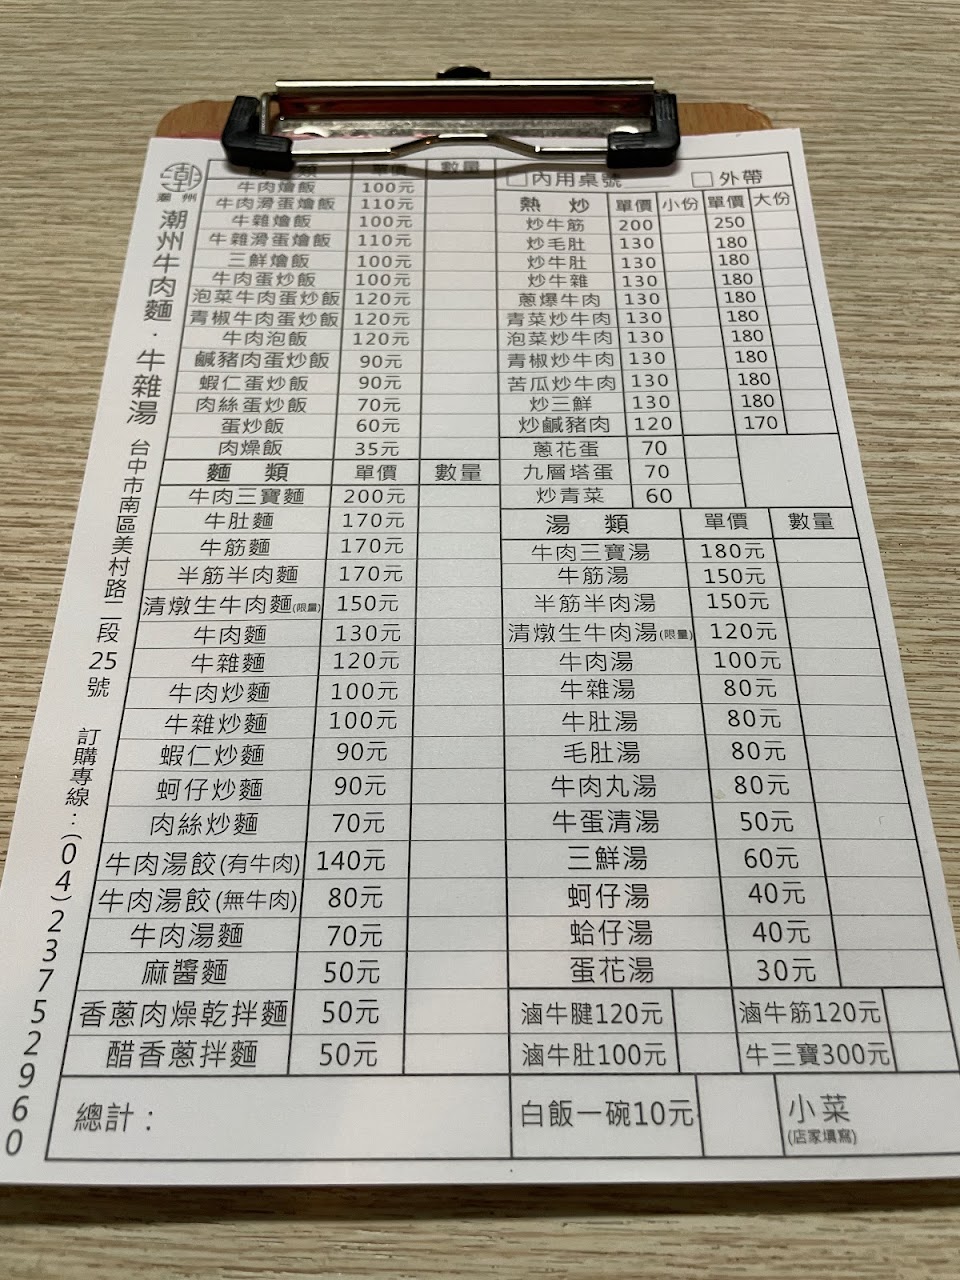 潮
潮州
潮州牛肉麵．牛雜湯 台中市南區美村路二段25號 訂購專線：(04)23752960
飯 類 單價 數量
牛肉燴飯 100元
牛肉滑蛋燴飯 110元
牛雜燴飯 100元
牛雜滑蛋燴飯 110元
三鮮燴飯 100元
牛肉蛋炒飯 100元
泡菜牛肉蛋炒飯 120元
青椒牛肉蛋炒飯 120元
牛肉泡飯 120元
鹹豬肉蛋炒飯 90元
蝦仁蛋炒飯 90元
肉絲蛋炒飯 70元
蛋炒飯 60元
肉燥飯 35元
麵 類 單價 數量
牛肉三寶麵 200元
牛肚麵 170元
牛筋麵 170元
半筋半肉麵 170元
清燉生牛肉麵(限量) 150元
牛肉麵 130元
牛雜麵 120元
牛肉炒麵 100元
牛雜炒麵 100元
蝦仁炒麵 90元
蚵仔炒麵 90元
肉絲炒麵 70元
牛肉湯餃(有牛肉) 140元
牛肉湯餃(無牛肉) 80元
牛肉湯麵 70元
麻醬麵 50元
香蔥肉燥乾拌麵 50元
醋香蔥拌麵 50元
總計：
□內用桌號 □外帶
熱 炒 單價 小份 單價 大份
炒牛筋 200 250
炒毛肚 130 180
炒牛肚 130 180
炒牛雜 130 180
蔥爆牛肉 130 180
青菜炒牛肉 130 180
泡菜炒牛肉 130 180
青椒炒牛肉 130 180
苦瓜炒牛肉 130 180
炒三鮮 130 180
炒鹹豬肉 120 170
蔥花蛋 70
九層塔蛋 70
炒青菜 60
湯 類 單價 數量
牛肉三寶湯 180元
牛筋湯 150元
半筋半肉湯 150元
清燉生牛肉湯(限量) 120元
牛肉湯 100元
牛雜湯 80元
牛肚湯 80元
毛肚湯 80元
牛肉丸湯 80元
牛蛋清湯 50元
三鮮湯 60元
蚵仔湯 40元
蛤仔湯 40元
蛋花湯 30元
滷牛腱120元 滷牛筋120元
滷牛肚100元 牛三寶300元
白飯一碗10元 小菜
(店家填寫)